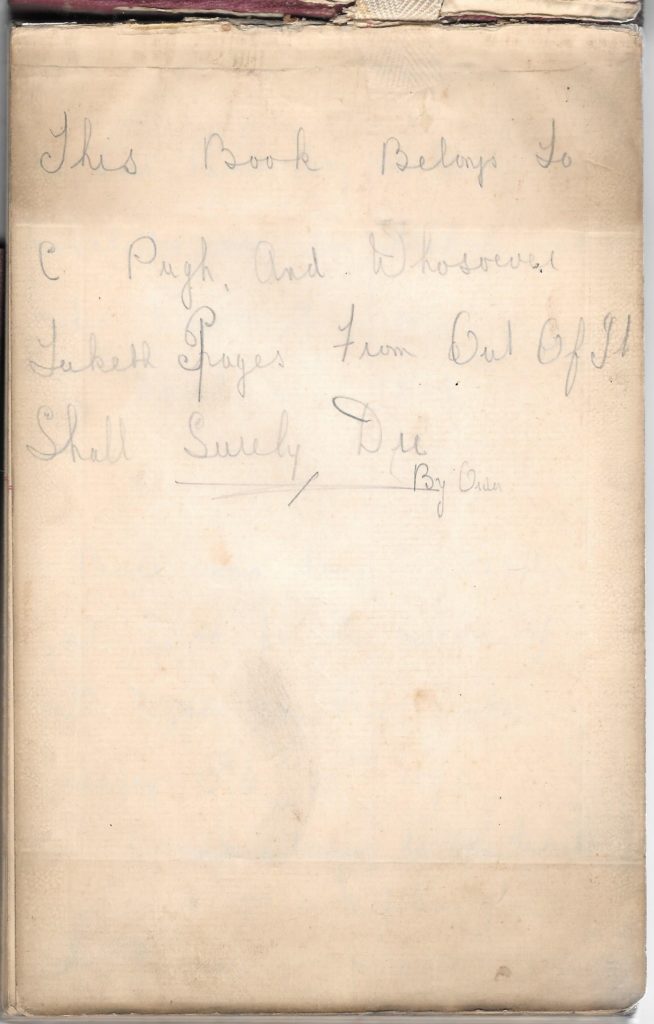 This Book Belongs To
C Pugh, And Whosoever
Taketh Pages From Out Of It
Shall Surely Die
By Order